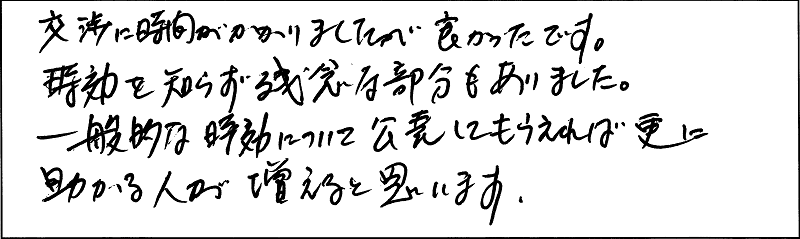 交渉に時間がかかりましたが良かったです。
時効を知らず残念な部分もありました。
一般的な時効について公表してもらえれば更に
助かる人が増えると思います.